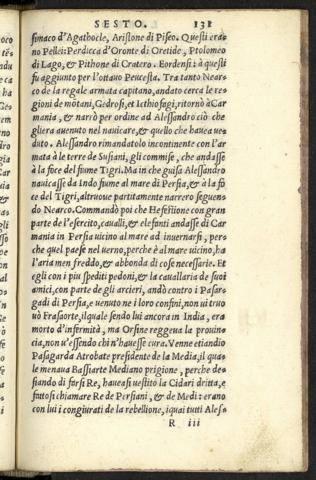 SESTO. 131
simaco d'Agathocle, Aristone di Piseo. Questi era-
no Pellei: Perdicca d'Oronte di Oretide, Ptolomeo
di Lago, & Pithone di Cratero. Eordensi: à questi
fu aggiunto per l'ottauo Peucesta. Tra tanto Near-
co de la regale armata capitano, andato cerca le re-
gioni de mótani, Gedrosi, et Icthiofagi, ritornò à Car
mania, & narrò per ordine ad Alessandro ciò che
gliera auenuto nel nauicare, & quello che hauea ue-
duto. Alessandro rimandatolo incontinente con l'ar
mata à le terre de Susiani, gli commise, che andasse
à la foce del fiume Tigri. Ma in che guisa Alessandro
nauicasse da Indo fiume al mare di Persia, & à la fo
ce del Tigri, altruoue partitamente narrero seguen-
do Nearco. Commandò poi che Hefestione con gran
parte de l'esercito, caualli, & elefanti andasse di Car
mania in Persia uicino al mare ad inuernarsi, pers
che quel paese nel uerno, perche è al mare uicino, ha
l'aria men freddo, & abbonda di cose necessarie. Et
egli con i piu spediti pedoni, & la cauallaria de suoi
amici, con parte de gli arcieri, andò contro i Pasar-
gadi di Persia, e uenuto ne i loro confini, non ui truo
uò Frasaorte, il quale sendo lui ancora in India, era
morto d'infermità, ma Orsine reggeua la prouin-
cia, non u'essendo chi n'hauesse cura. Venne etiandio
Pasagarda Atrobate presidente de la Media, il qua-
le menaua Bassiarte Mediano prigione, perche de-
siando di farsi Re, haueasi uestito la Cidari dritta, e
fattosi chiamare Re de Persiani, & de Medi: erano
con lui i congiurati de la rebellione, i quai tutti Ales-
R iii